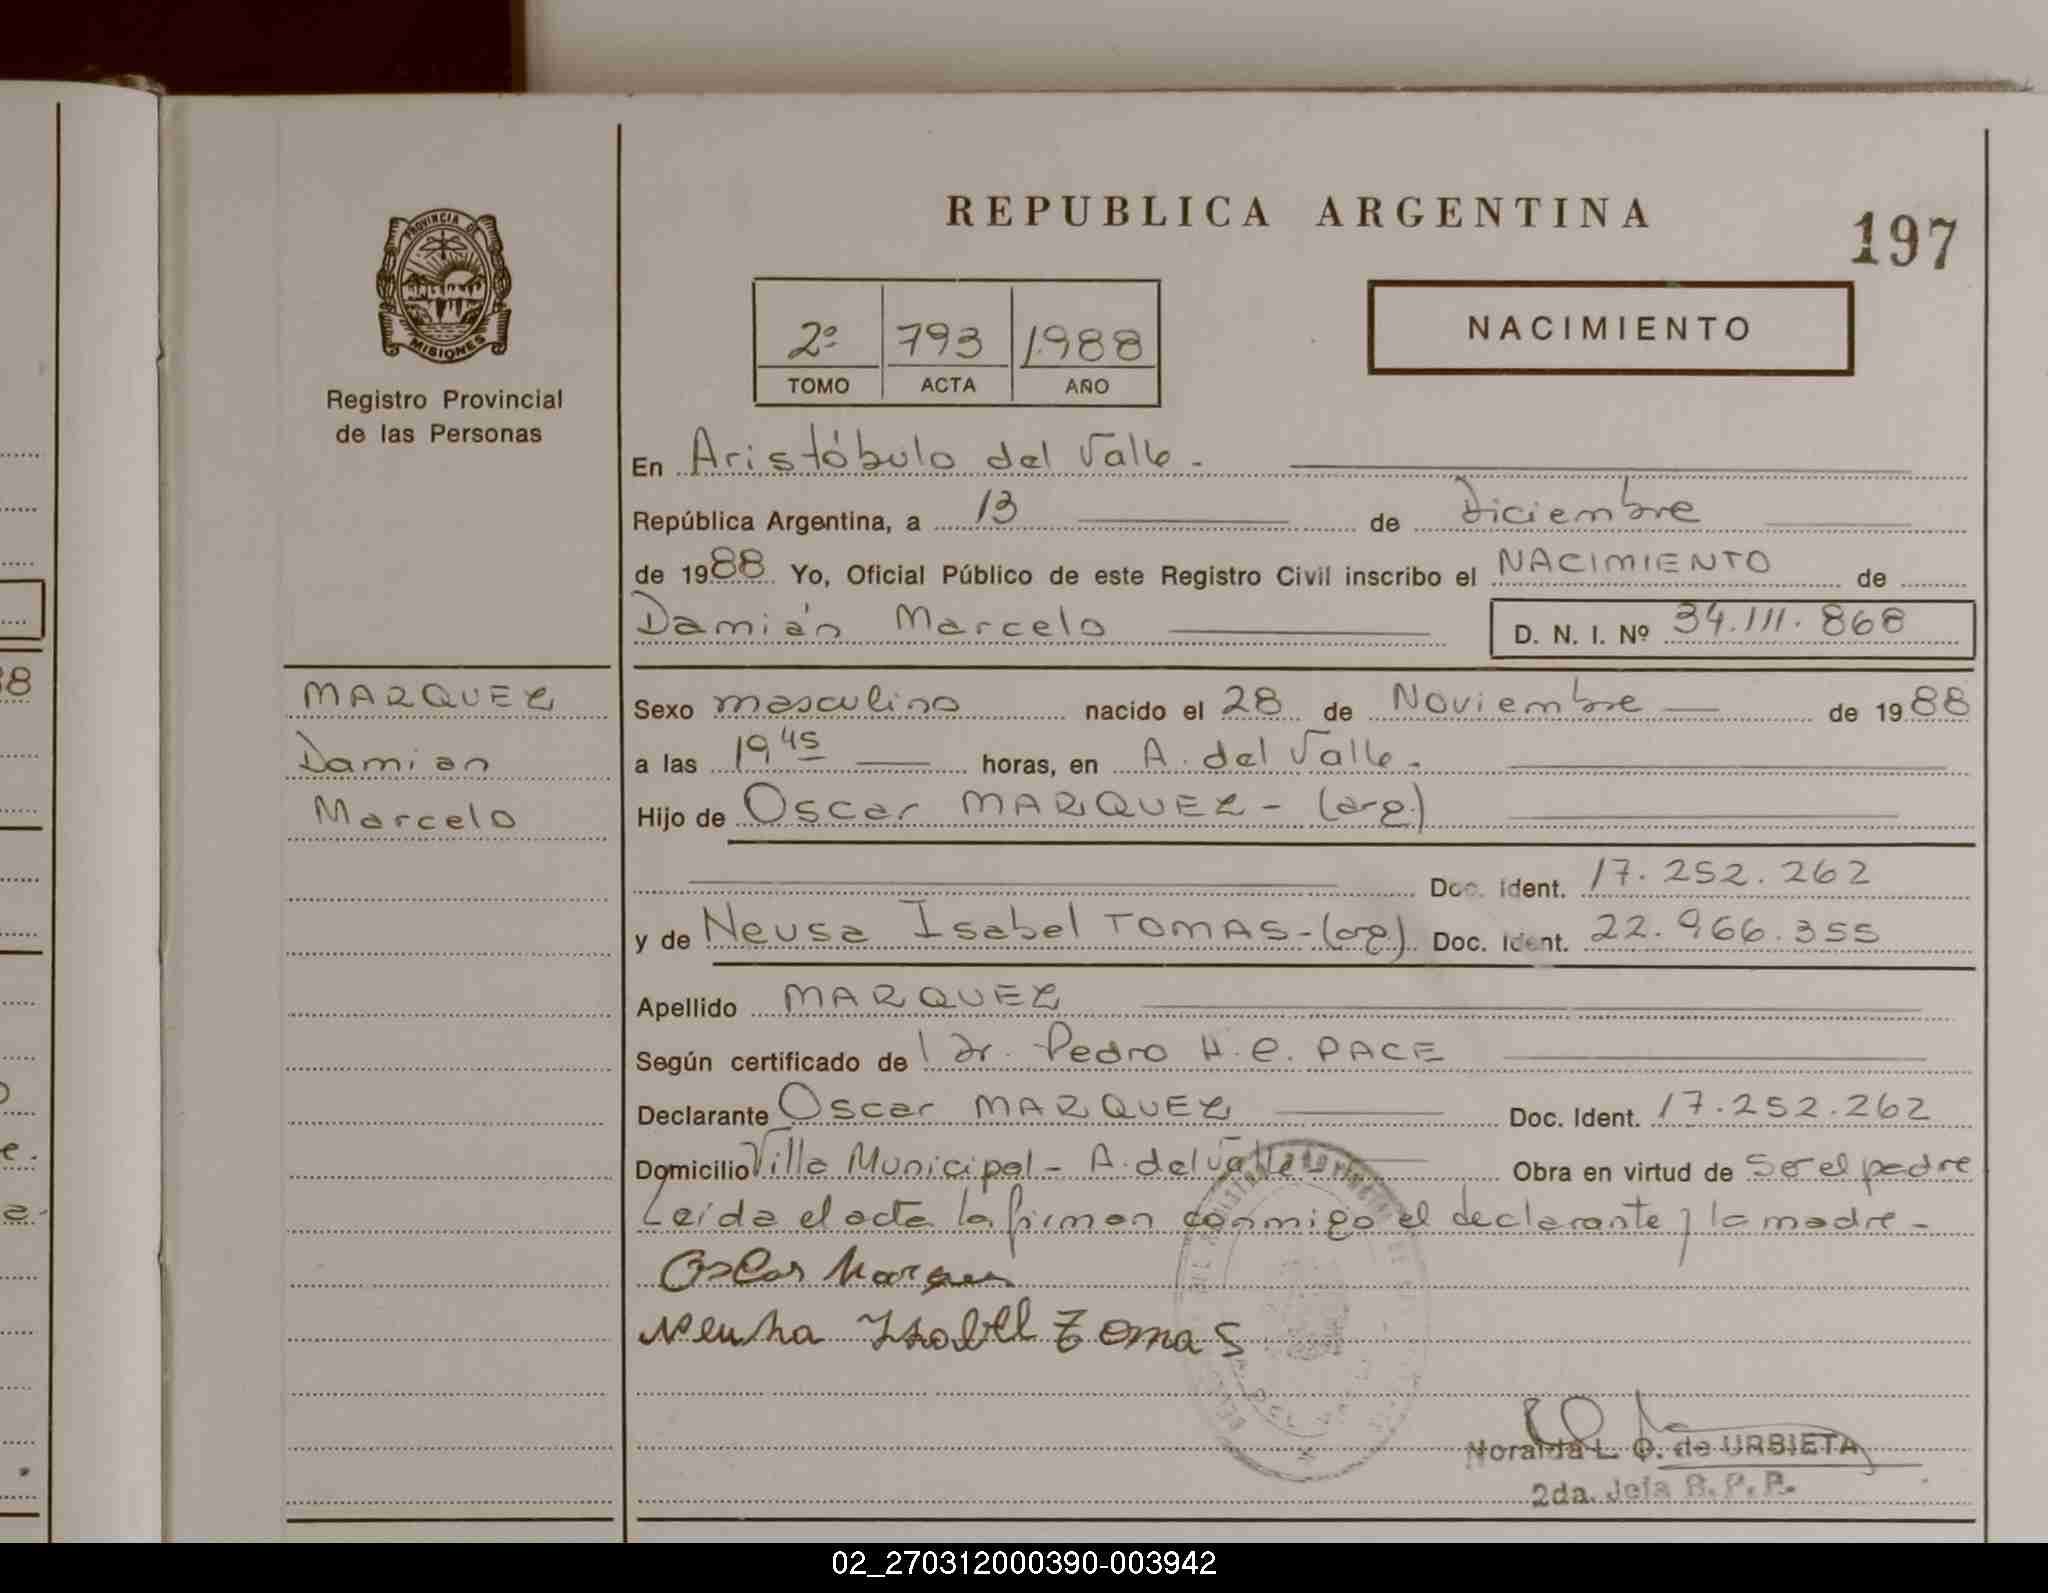 REPUBLICA ARGENTINA
197
PROVINCIA DE
MISIONES
Registro Provincial
de las Personas
2º 793 1988
TOMO ACTA AÑO
NACIMIENTO
En Aristóbulo del Valle.
República Argentina, a 13 de Diciembre
de 1988 Yo, Oficial Público de este Registro Civil inscribo el NACIMIENTO de
Damián Marcelo D. N. I. Nº 34.111.868
MARQUEZ
Damian
Marcelo
Sexo masculino nacido el 28 de Noviembre de 1988
a las 19 45 horas, en A. del Valle.
Hijo de Oscar MARQUEZ - (arg.)
Doc. Ident. 17.252.262
y de Neusa Isabel TOMAS - (arg) Doc. Ident. 22.966.355
Apellido MARQUEZ
Según certificado de Dr. Pedro H. C. PACE
Declarante Oscar MARQUEZ Doc. Ident. 17.252.262
Domicilio Villa Municipal - A. del Valle - Obra en virtud de ser el padre
Leída el acta la firman conmigo el declarante y la madre -
Oscar Marques
Neusha Isabel Tomas
Noralda L. O. de URBIETA
2da. Jefa R. P. P.
02_270312000390-003942